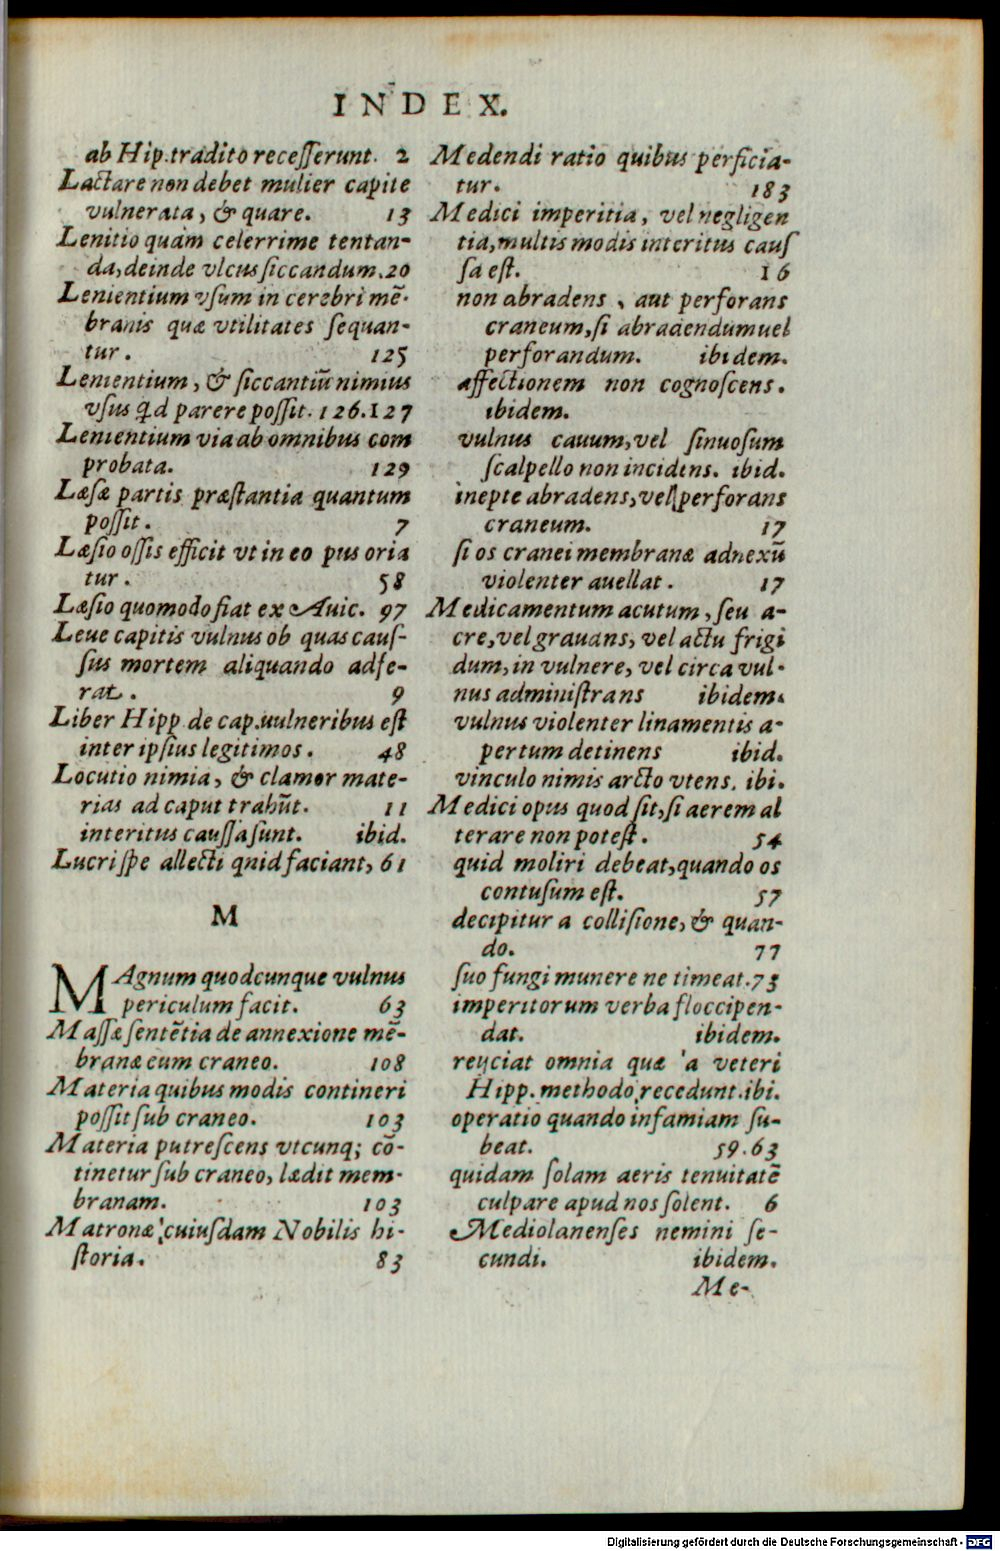 INDEX.
ab Hip.tradito recesserunt. 2
Lactare non debet mulier capite
vulnerata, & quare. 13
Lenitio quàm celerrime tentan-
da,deinde vlcus siccandum.20
Lenientium vsum in cerebri mē-
branis quæ vtilitates sequan-
tur. 125
Lenientium, & siccantiū nimius
vsus qd parere possit. 126.127
Lenientium via ab omnibus com
probata. 129
Læsæ partis præstantia quantum
possit. 7
Læsio ossis efficit vt in eo pus oria
tur. 58
Læsio quomodo fiat ex Auic. 97
Leue capitis vulnus ob quas caus-
sus mortem aliquando adfe-
rat. 9
Liber Hipp de cap.uulneribus est
inter ipsius legitimos. 48
Locutio nimia, & clamor mate-
rias ad caput trahūt. 11
interitus caussa sunt. ibid.
Lucri spe allecti qnid faciant, 61
M
MAgnum quodcunque vulnus
periculum facit. 63
Massæ sentētia de annexione mē-
branæ cum craneo. 108
Materia quibus modis contineri
possit sub craneo. 103
Materia putrescens vtcunq; cō-
tinetur sub craneo, lædit mem-
branam. 103
Matronæ cuiusdam Nobilis hi-
storia. 83
Medendi ratio quibus perficia-
tur. 183
Medici imperitia, vel negligen
tia,multis modis interitus caus
sa est. 16
non abradens, aut perforans
craneum,si abradendum uel
perforandum. ibidem.
affectionem non cognoscens.
ibidem.
vulnus cauum,vel sinuosum
scalpello non incidens. ibid.
inepte abradens,vel perforans
craneum. 17
si os cranei membranæ adnexū
violenter auellat. 17
Medicamentum acutum, seu a-
cre,vel grauans, vel actu frigi
dum,in vulnere, vel circa vul-
nus administrans ibidem.
vulnus violenter linamentis a-
pertum detinens ibid.
vinculo nimis arcto vtens. ibi.
Medici opus quod sit,si aerem al
terare non potest. 54
quid moliri debeat,quando os
contusum est. 57
decipitur a collisione, & quan-
do. 77
suo fungi munere ne timeat.73
imperitorum verba floccipen-
dat. ibidem.
reijciat omnia quæ 'a veteri
Hipp. methodo recedunt.ibi.
operatio quando infamiam su-
beat. 59.63
quidam solam aeris tenuitatē
culpare apud nos solent. 6
Mediolanenses nemini se-
cundi. ibidem.
Me-
Digitalisierung gefördert durch die Deutsche Forschungsgemeinschaft - DFG